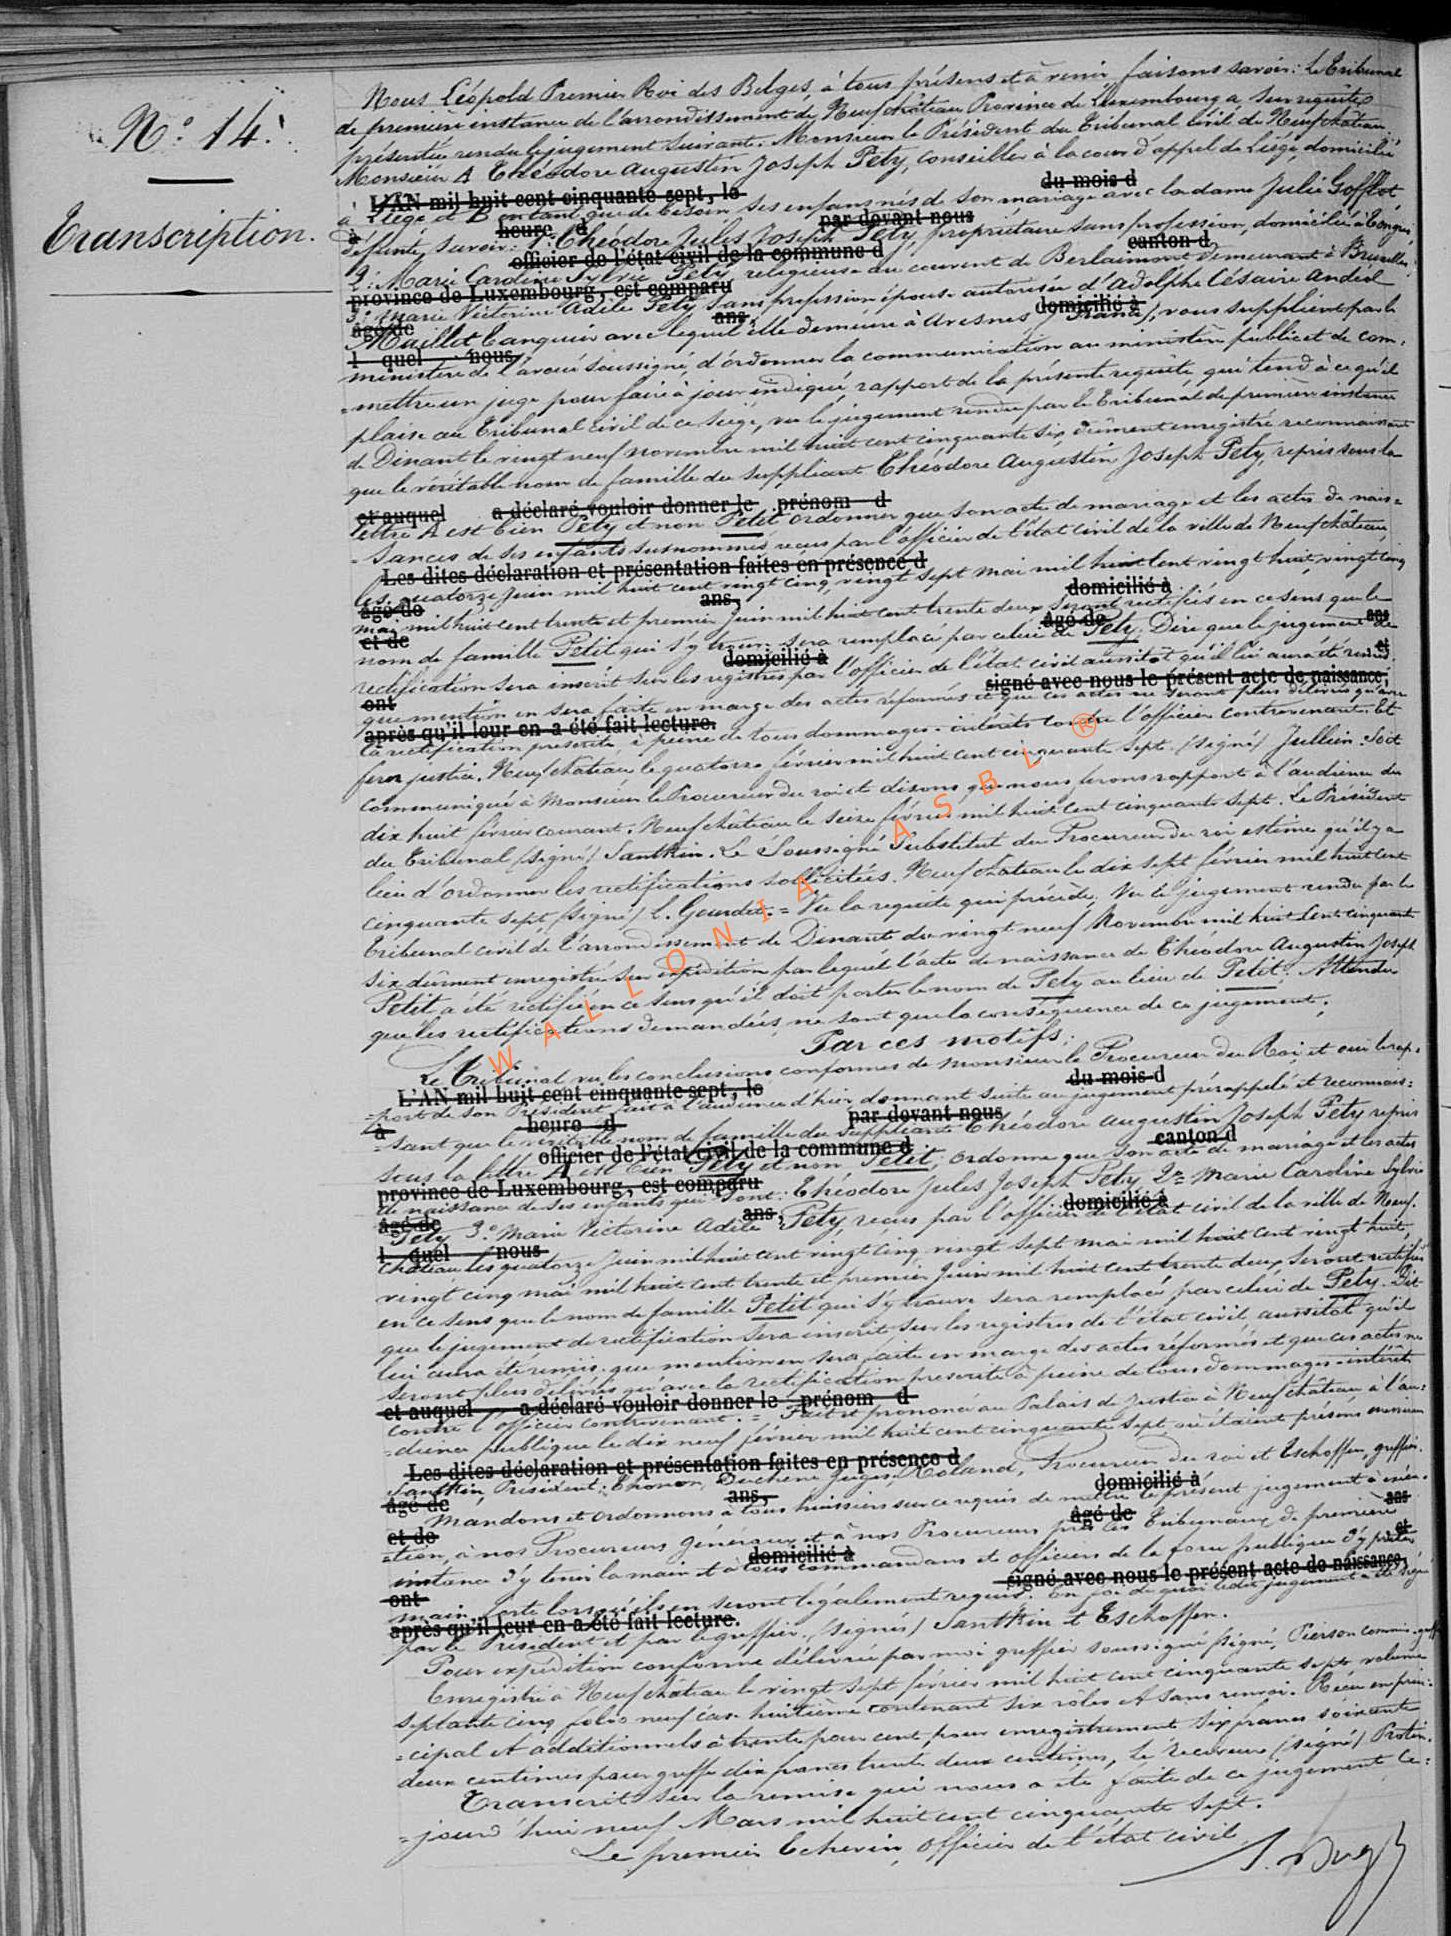 N° 14.
Transcription.
Nous Léopold Premier Roi des Belges, à tous présens et à venir faisons savoir : Le Tribunal
de première instance de l'arrondissement de Neufchâteau Province de Luxembourg a, sur requête
présentée rendu le jugement suivant. Monsieur le Président du Tribunal civil de Neufchâteau,
Monsieur A Théodore Augustin Joseph Pety, conseiller à la cour d'appel de Liège, domicilié
L'AN mil huit cent cinquante-sept, le du mois d
à Liège et B en tant que de besoin ses enfans nés de son mariage avec la dame Julie Gofflot
à heure d par devant nous
défunte, savoir : 1° Théodore Jules Joseph Pety, propriétaire sans profession, domicilié à
officier de l'état civil de la commune d canton d
2° Marie Caroline Sylvie Pety, religieuse au couvent de Berlaimont demeurant à Bruxelles
province de Luxembourg, est comparu
3° Marie Victorine Adèle Pety sans profession épouse autorisée d'Adolphe Césaire Andéol
âgé de ans, domicilié à
Maillet banquier avec lequel elle demeure à Avesnes (France), vous supplient par le
l quel nous
ministère de l'avoué soussigné, d'ordonner la communication au ministère public et de com-
-mettre un juge pour faire à jour indiqué, rapport de la présente requête qui tend à ce qu'il
plaise au Tribunal civil de ce siège, vu le jugement rendu par le Tribunal de première instance
de Dinant le vingt neuf novembre mil huit cent cinquante six dûment enregistré reconnaissant
que le véritable nom de famille du suppliant Théodore Augustin Joseph Pety, repris sous la
et auquel a déclaré vouloir donner le prénom d
lettre A est bien Pety et non Petit ordonner que son acte de mariage et les actes de nais-
-sances de ses enfants susnommés reçus par l'officier de l'état civil de la ville de Neufchâteau
Les dites déclaration et présentation faites en présence d
les quatorze Juin mil huit cent vingt cinq, vingt sept mai mil huit cent vingt huit, vingt cinq
âgé de ans, domicilié à
mai mil huit cent trente et premier Juin mil huit cent trente deux seront rectifiés en ce sens que le
et de âgé de ans
nom de famille Petit qui s'y trouve sera remplacé par celui de Pety. Dire que le jugement de
domicilié à et
rectification sera inscrit sur les registres par l'officier de l'état civil aussitôt qu'il lui aura été remis
ont signé avec nous le présent acte de naissance,
que mention en sera faite en marge des actes réformés et que ces actes ne seront plus délivrés qu'avec
après qu'il leur en a été fait lecture.
la rectification prescrite, à peine de tous dommages-intérêts contre l'officier contrevenant. Et
ferez justice. Neufchâteau le quatorze février mil huit cent cinquante sept. (signé) Jullien. Soit
communiqué à Monsieur le Procureur du roi et disons que nous ferons rapport à l'audience du
dix huit février courant. Neufchâteau le seize février mil huit cent cinquante sept. Le Président
du Tribunal (signé) Santkin. Le Soussigné Substitut du Procureur du roi estime qu'il y a
lieu d'ordonner les rectifications sollicitées. Neufchâteau le dix sept février mil huit cent
cinquante sept (signé) C. Gourdet. = Vu la requête qui précède, Vu le jugement rendu par le
Tribunal civil de l'arrondissement de Dinant du vingt neuf Novembre mil huit cent cinquante
six dûment enregistré sur expédition par lequel l'acte de naissance de Théodore Augustin Joseph
Petit a été rectifié en ce sens qu'il doit porter le nom de Pety au lieu de Petit. Attendu
que les rectifications demandées, ne sont que la conséquence de ce jugement,
Par ces motifs,
Le Tribunal vu les conclusions conformes de monsieur le Procureur du Roi et oui le rap-
L'AN mil huit cent cinquante-sept, le du mois d
-port de son Président fait à l'audience d'hier donnant suite au jugement prérappelé et reconnais-
à heure d par devant nous
-sant que le véritable nom de famille du suppliant Théodore Augustin Joseph Pety repris
officier de l'état civil de la commune d canton d
sous la lettre A est bien Pety et non Petit, ordonne que son acte de mariage et les actes
province de Luxembourg, est comparu
de naissance de ses enfants qui sont : Théodore Jules Joseph Pety, 2° Marie Caroline Sylvie
âgé de ans, domicilié à
Pety 3° Marie Victorine Adèle Pety, reçus par l'officier de l'état civil de la ville de Neuf-
l quel nous
château les quatorze Juin mil huit cent vingt cinq, vingt sept mai mil huit cent vingt huit,
vingt cinq mai mil huit cent trente et premier Juin mil huit cent trente deux seront rectifiés
en ce sens que le nom de famille Petit qui s'y trouve sera remplacé par celui de Pety. Dit
que le jugement de rectification sera inscrit sur les registres de l'état civil aussitôt qu'il
lui aura été remis. que mention en sera faite en marge des actes réformés et que ces actes ne
seront plus délivrés qu'avec la rectification prescrite à peine de tous dommages-intérêts
et auquel a déclaré vouloir donner le prénom d
contre l'officier contrevenant. = Fait et prononcé au Palais de Justice à Neufchâteau à l'au-
-dience publique le dix neuf février mil huit cent cinquante sept, où étaient présens messieurs
Les dites déclaration et présentation faites en présence d
Santkin, Président ; Thonon, Duchene Juges, Roland, Procureur du roi et Eschoffen, greffier.
âgé de ans, domicilié à
Mandons et ordonnons à tous huissiers sur ce requis de mettre le présent jugement à exécu-
et de âgé de ans
-tion, à nos Procureurs généraux et à nos Procureurs près les Tribunaux de première
domicilié à et
instance d'y tenir la main et à tous commandans et officiers de la force publique d'y prêter
ont signé avec nous le présent acte de naissance,
main forte lorsqu'ils en seront légalement requis. En foi de quoi ledit jugement a été signé
après qu'il leur en a été fait lecture.
par le Président et par le greffier. (signés) Santkin et Eschoffen.
Pour expédition conforme délivrée par moi greffier soussigné (signé) Pierson commis-greffier
Enregistré à Neufchâteau le vingt sept février mil huit cent cinquante sept volume
septante cinq folio neuf case huitième contenant six rôles et sans renvoi. Reçu en prin-
-cipal et additionnels à trente pour cent pour enregistrement six francs soixante
deux centimes pour greffe dix francs trente deux centimes, Le Receveur (signé) Protin.
Transcrit sur la remise qui nous a été faite de ce jugement ce-
-jourd'hui neuf Mars mil huit cent cinquante sept.
Le premier Echevin, officier de l'état civil
WALLONIA ASBL ®